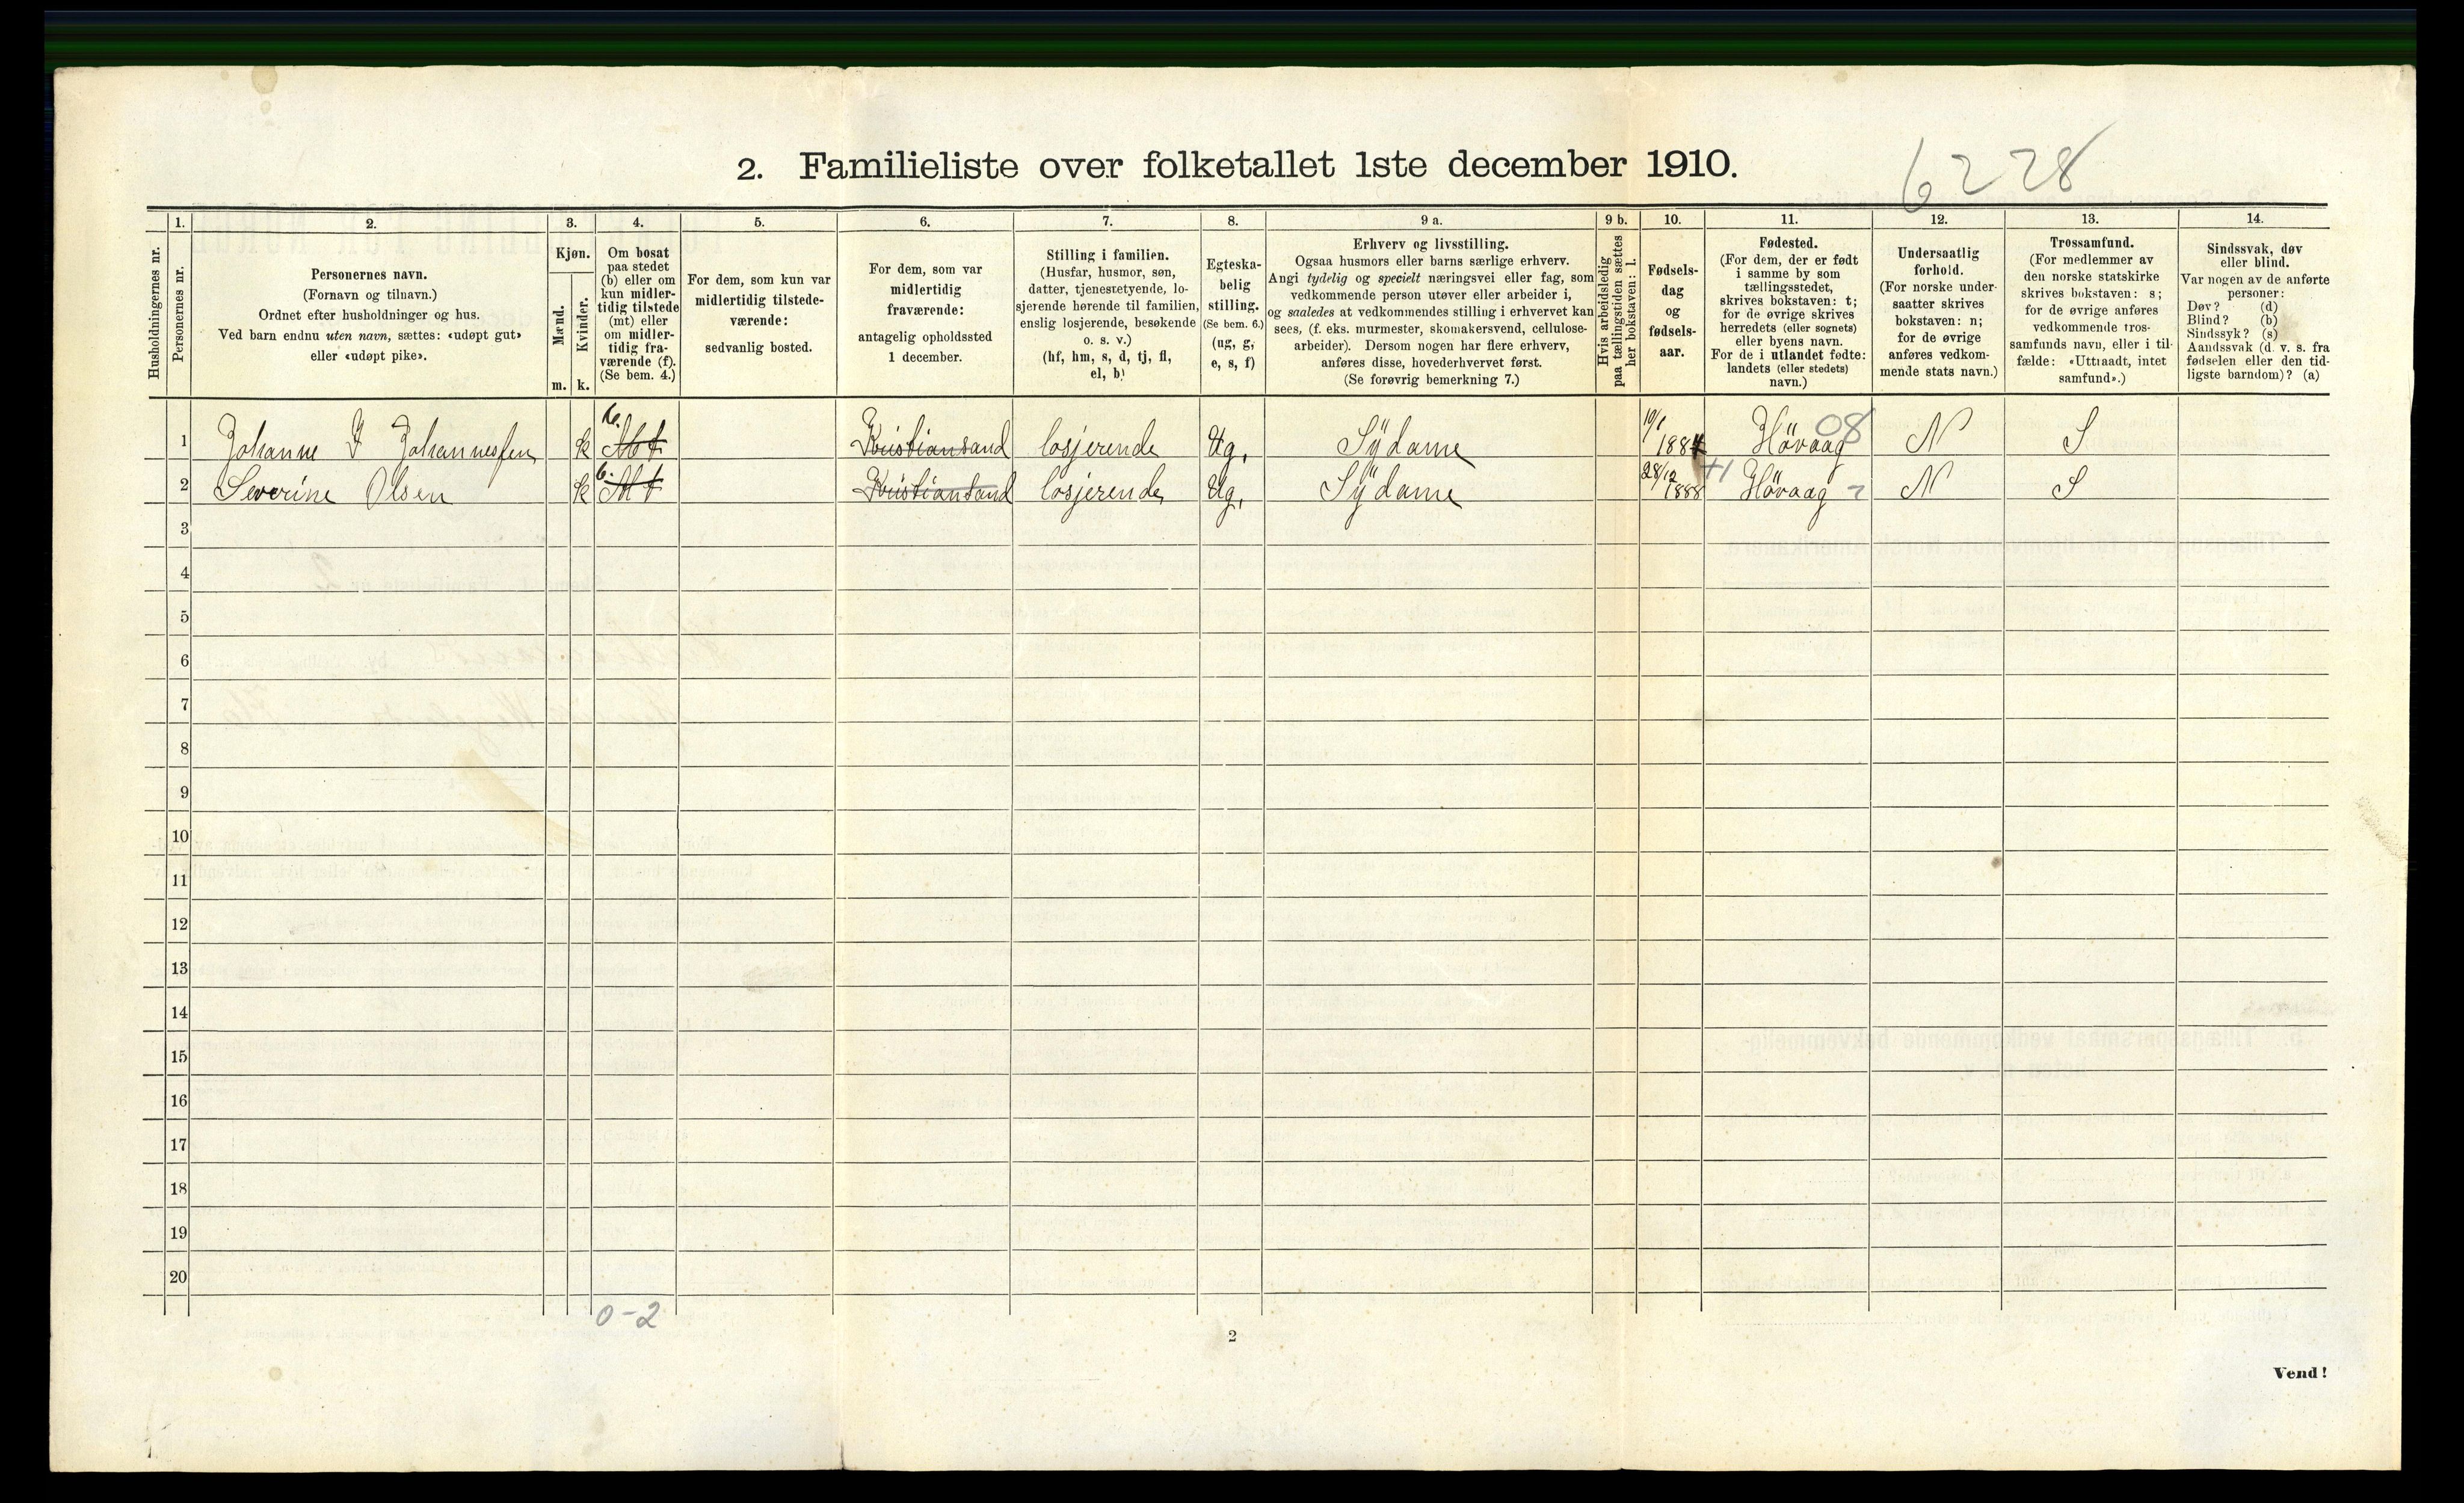 2. Familieliste over folketallet 1ste december 1910.
6228
Husholdningernes nr.
1.
Personernes nr.
2.
Personernes navn.
(Fornavn og tilnavn.)
Ordnet efter husholdninger og hus.
Ved barn endnu uten navn, sættes: «udøpt gut»
eller «udøpt pike».
3.
Kjøn.
Mænd.
m.
Kvinder.
k.
4.
Om bosat
paa stedet
(b) eller om
kun midler-
tidig tilstede
(mt) eller
om midler-
tidig fra-
værende (f).
(Se bem. 4.)
5.
For dem, som kun var
midlertidig tilstede-
værende:
sedvanlig bosted.
6.
For dem, som var
midlertidig
fraværende:
antagelig opholdssted
1 december.
7.
Stilling i familien.
(Husfar, husmor, søn,
datter, tjenestetyende, lo-
sjerende hørende til familien,
enslig losjerende, besøkende
o. s. v.)
(hf, hm, s, d, tj, fl,
el, b)
8.
Egteska-
belig
stilling.
(Se bem. 6.)
(ug, g,
e, s, f)
9 a.
Erhverv og livsstilling.
Ogsaa husmors eller barns særlige erhverv.
Angi tydelig og specielt næringsvei eller fag, som
vedkommende person utøver eller arbeider i,
og saaledes at vedkommendes stilling i erhvervet kan
sees, (f. eks. murmester, skomakersvend, cellulose-
arbeider). Dersom nogen har flere erhverv,
anføres disse, hovederhvervet først.
(Se forøvrig bemerkning 7.)
9 b.
Hvis arbeidsledig
paa tællingstiden sættes
her bokstaven: l.
10.
Fødsels-
dag
og
fødsels-
aar.
11.
Fødested.
(For dem, der er født
i samme by som
tællingsstedet,
skrives bokstaven: t;
for de øvrige skrives
herredets (eller sognets)
eller byens navn.
For de i utlandet fødte:
landets (eller stedets)
navn.)
12.
Undersaatlig
forhold.
(For norske under-
saatter skrives
bokstaven: n;
for de øvrige
anføres vedkom-
mende stats navn.)
13.
Trossamfund.
(For medlemmer av
den norske statskirke
skrives bokstaven: s;
for de øvrige anføres
vedkommende tros-
samfunds navn, eller i til-
fælde: «Uttraadt, intet
samfund».)
14.
Sindssvak, døv
eller blind.
Var nogen av de anførte
personer:
Døv? (d)
Blind? (b)
Sindssyk? (s)
Aandssvak (d. v. s. fra
fødselen eller den tid-
ligste barndom)? (a)
1 Johanne J Johannessen k b. Mt Kristiansand losjerende Ug. Sÿdame 10/1 1884 Hövaag 08 N S
2 Severine Olsen k b. Mt Kristiansand losjerende Ug. Sÿdame 28/12 1888 Hövaag N S
3
4
5
6
7
8
9
10
11
12
13
14
15
16
17
18
19
20
0-2
2
Vend!